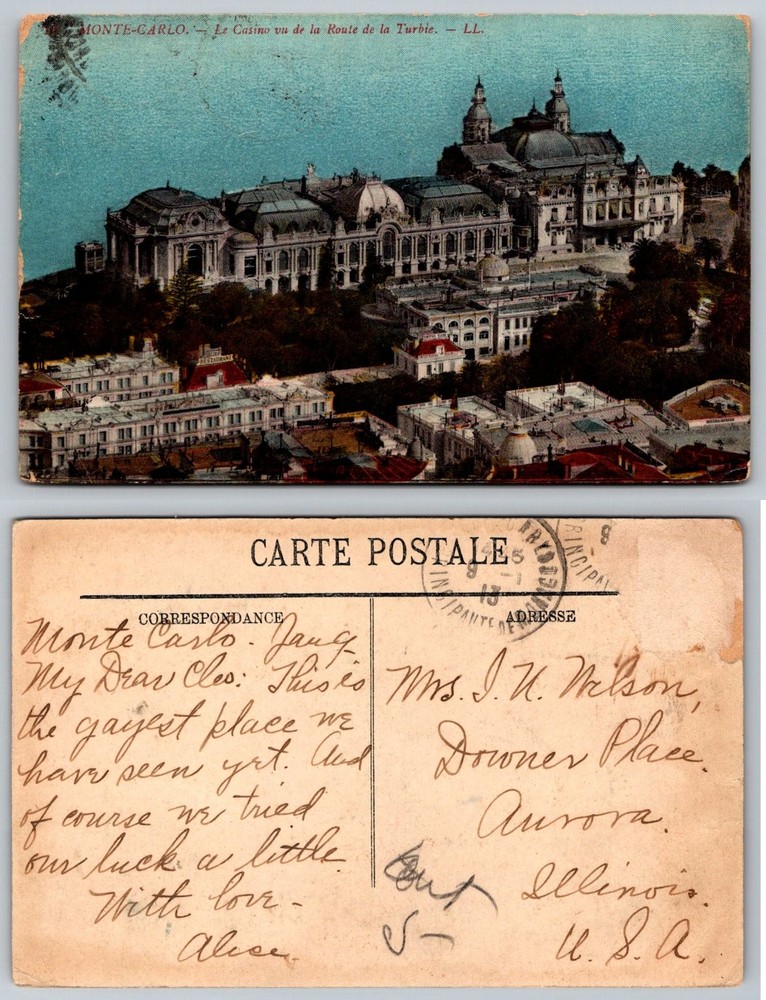 MONTE-CARLO. — Le Casino vu de la Route de la Turbie. — LL.
RESTAURANT
CARTE POSTALE
CORRESPONDANCE
ADRESSE
9 -1
13
PRINCIPAUTE DE MONACO
8
PRINCIPA
Monte Carlo. Jan 9
My Dear Cleo: This is
the gayest place we
have seen yet. And
of course we tried
our luck a little.
With love -
Alice.
Mrs. I. N. Wilson,
Downer Place.
Aurora.
Illinois.
U. S. A.